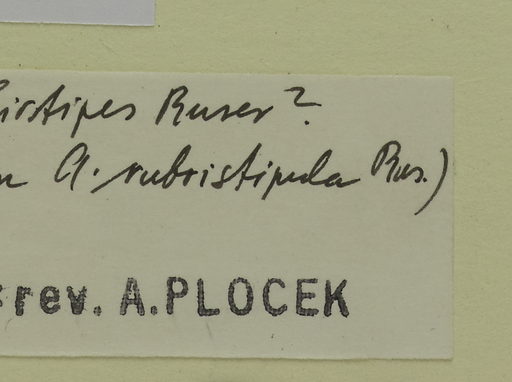 hirtipes Buser?
A. rubristipula Bus.)
rev. A.PLOCEK